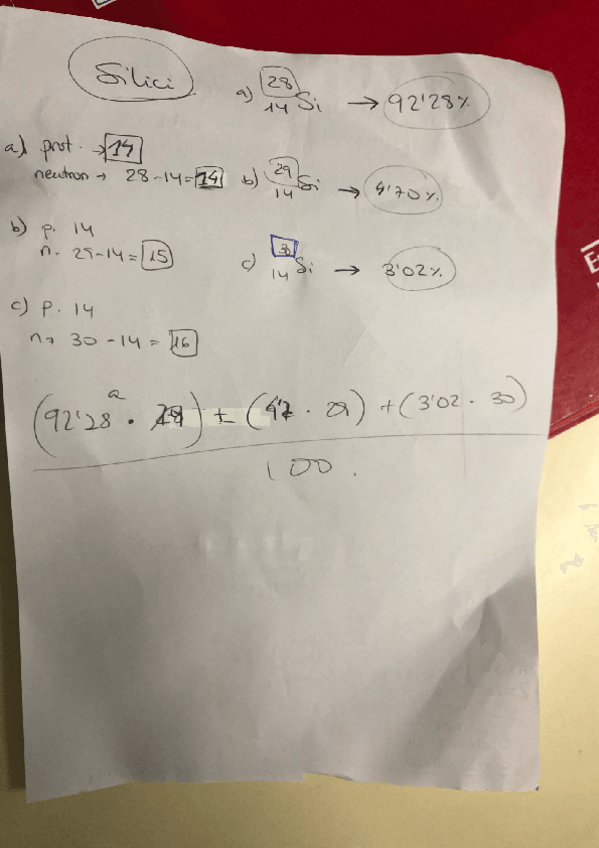 Silici
a) 28 14 Si → 92'28%
a) prot. → 14
neutron → 28-14=14
b) 29 14 Si → 4'70%
b) p. 14
n. 29-14=15
c) 30 14 Si → 3'02%
c) p. 14
n → 30-14=16
(92'28 · 28) + (4'7 · 29) + (3'02 · 30)
100.